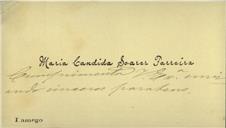 Maria Candida Soares Parreira
Cumprimenta V. Ex.ª envi
ando sinceros parabens.
Lamego